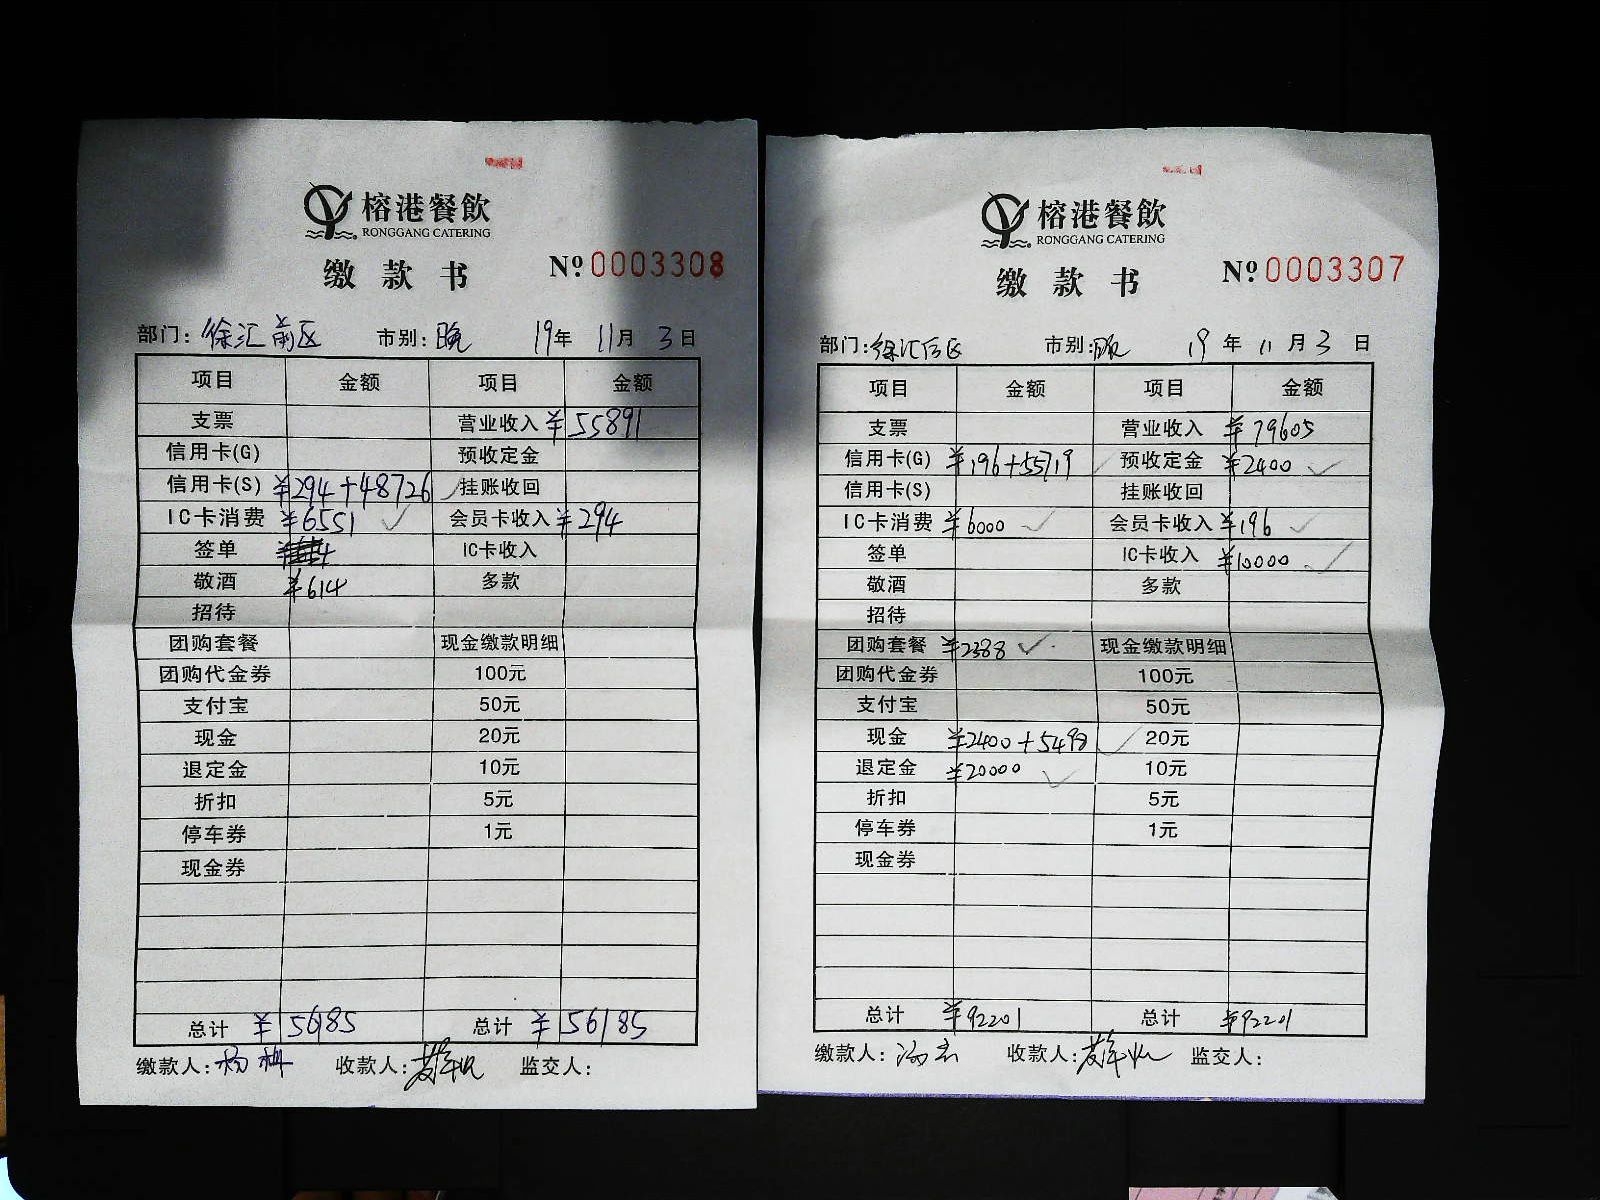 榕港餐飲
RONGGANG CATERING
缴款书 №0003308
部门: 徐汇前区 市别: 晚 19年 11月 3日
项目 金额 项目 金额
支票 营业收入 ¥55891
信用卡(G) 预收定金
信用卡(S) ¥294+48726 挂账收回
IC卡消费 ¥6551 会员卡收入 ¥294
签单 IC卡收入
敬酒 ¥614 多款
招待
团购套餐 现金缴款明细
团购代金券 100元
支付宝 50元
现金 20元
退定金 10元
折扣 5元
停车券 1元
现金券
总计 ¥56185 总计 ¥56185
缴款人: 收款人: 监交人:
榕港餐飲
RONGGANG CATERING
缴款书 №0003307
部门: 徐汇后区 市别: 晚 19年 11月 3日
项目 金额 项目 金额
支票 营业收入 ¥79605
信用卡(G) ¥196+55719 预收定金 ¥2400
信用卡(S) 挂账收回
IC卡消费 ¥6000 会员卡收入 ¥196
签单 IC卡收入 ¥10000
敬酒 多款
招待
团购套餐 ¥2388 现金缴款明细
团购代金券 100元
支付宝 50元
现金 ¥2400+5498 20元
退定金 ¥20000 10元
折扣 5元
停车券 1元
现金券
总计 ¥92201 总计 ¥92201
缴款人: 收款人: 监交人: